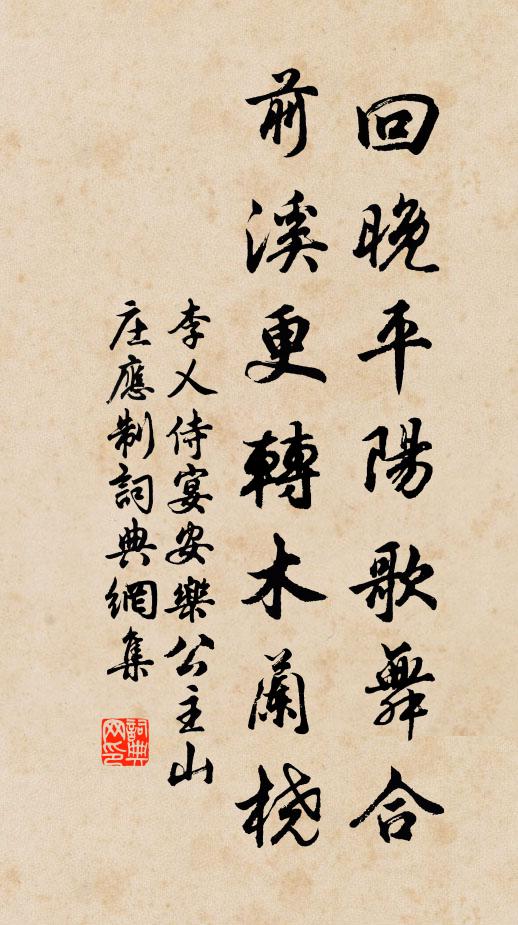 回晚平陽歌舞合
前溪更轉木蘭橈
李乂侍宴安樂公主山
庄應制詞典網集
詞典
网印